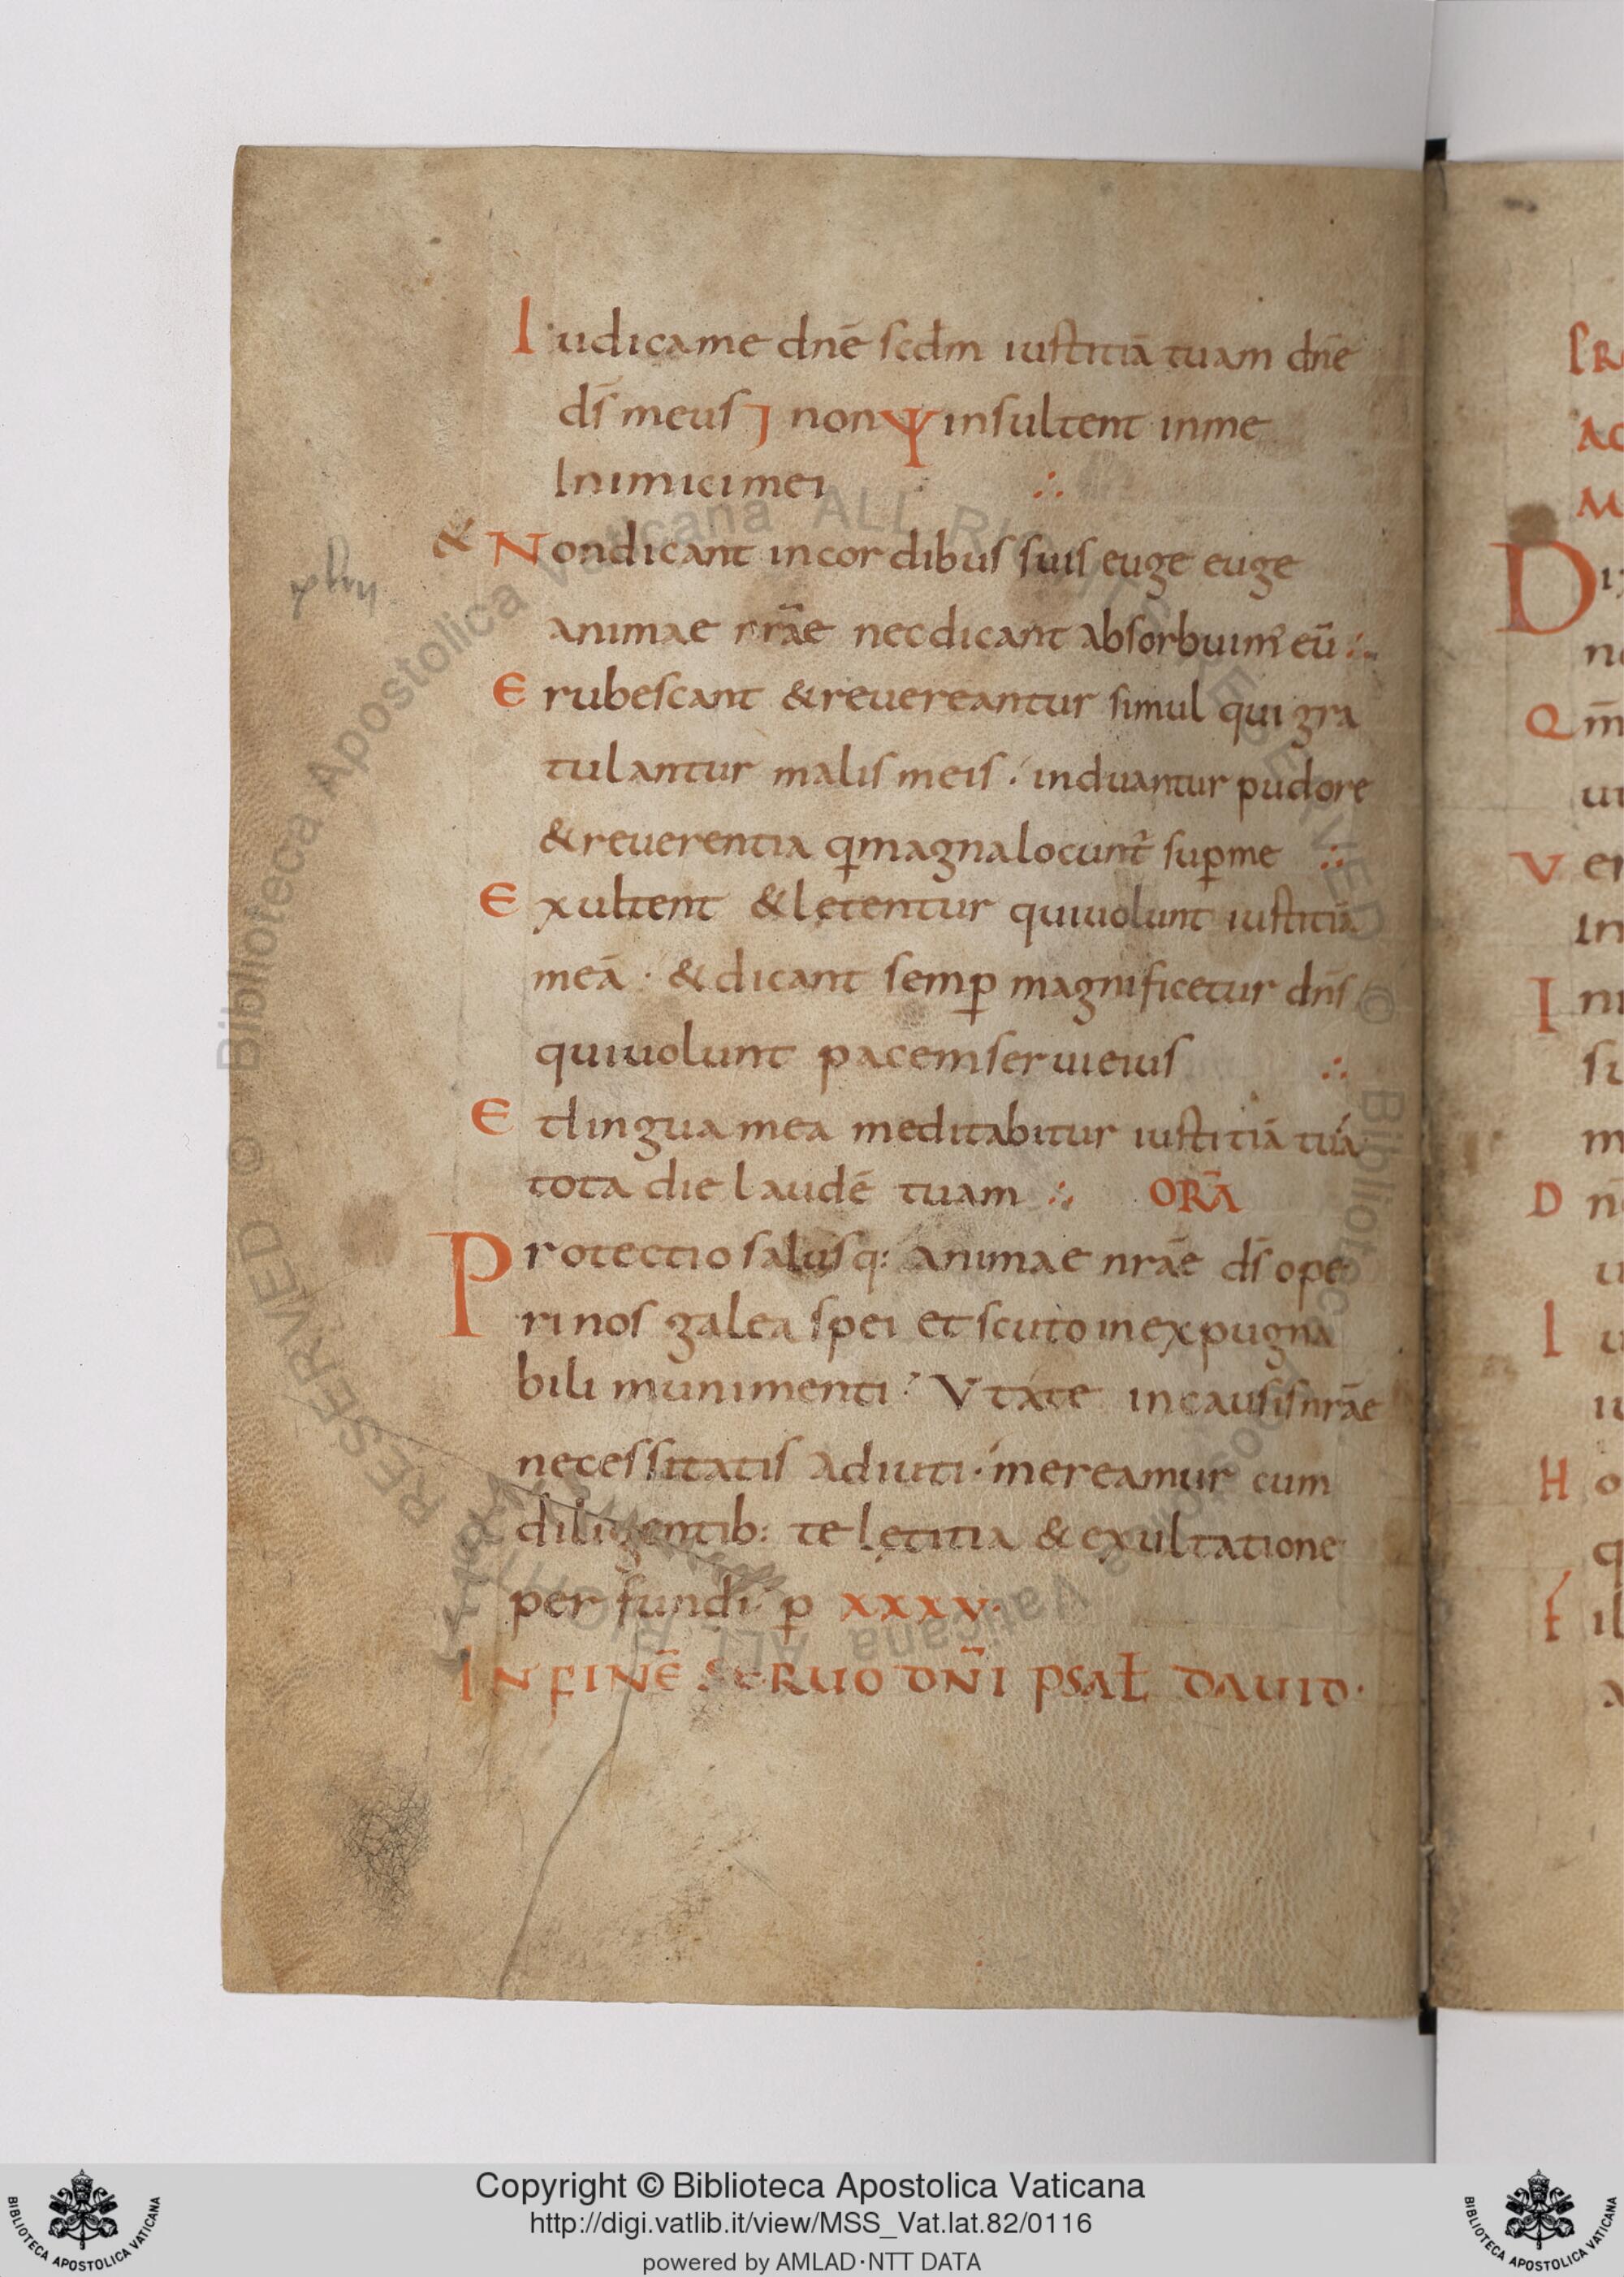 Iudica me dnē scdm iustitiā tuam dnē
ds̄ meus ɔ non Ψ insultent in me
Inimici mei ∴
& Non dicant in cordibus suis euge euge
animae nr̄ae nec dicant absorbuim᾽ eū ∴
Erubescant & reuereantur simul qui gra
tulantur malis meis ∴ induantur pudore
& reuerentia q magna locunt᾽ sup me ∴
Exultent & lętentur qui uolunt iustitiā
meā · & dicant semp magnificetur dn̄s
qui uolunt pacem serui eius ∴
Et lingua mea meditabitur iustitiā tuā
tota die laudē tuam ∴ ORĀ
Protectio salusq: animae nr̄ae ds̄ ope
ri nos galea spei et scuto inexpugna
bili munimenti · Vt a te in causis nr̄ae
necessitatis adiuti · mereamur cum
diligentib: te lętitia & exultatione
perfundi · p xxxv ·
IN FINĒ SERUO DN̄I PSAŁ DAUID ·
RESERVED © Biblioteca Apostolica Vaticana ALL RIGHTS RESERVED © Biblioteca Apostolica Vaticana ALL RIGHTS
Copyright © Biblioteca Apostolica Vaticana
http://digi.vatlib.it/view/MSS_Vat.lat.82/0116
powered by AMLAD·NTT DATA
BIBLIOTECA APOSTOLICA VATICANA
BIBLIOTECA APOSTOLICA VATICANA